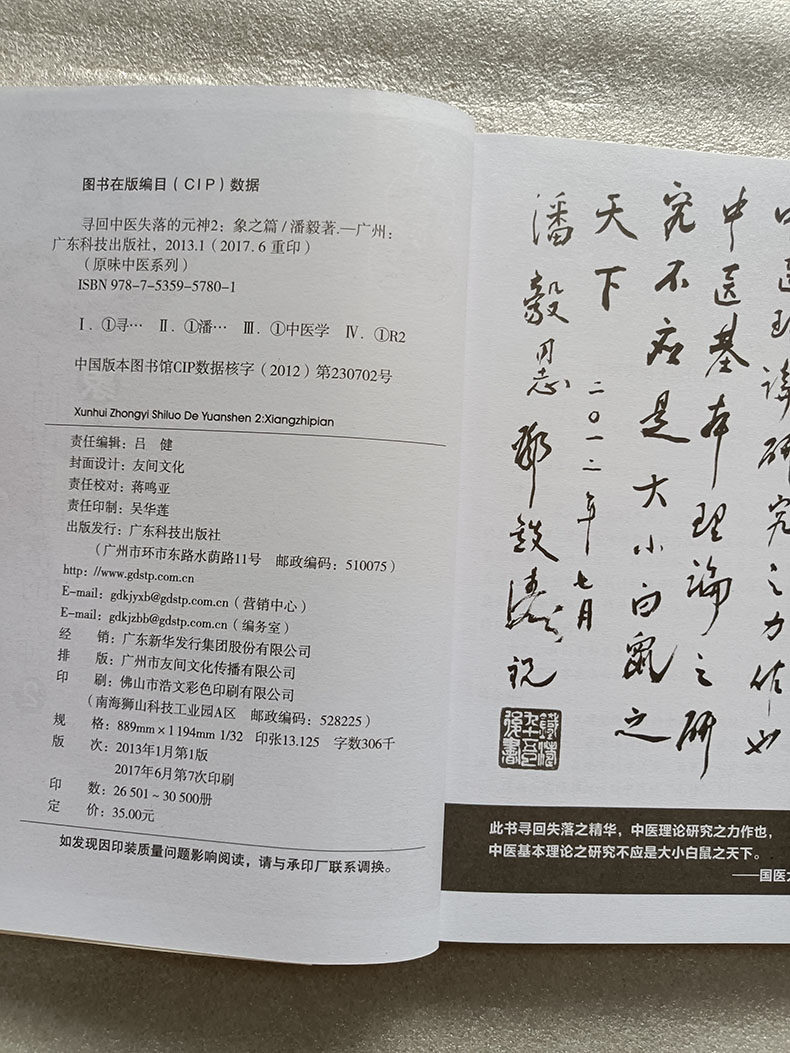 图书在版编目(CIP)数据
寻回中医失落的元神2:象之篇/潘毅著.—广州:
广东科技出版社,2013.1(2017.6重印)
(原味中医系列)
ISBN 978-7-5359-5780-1
Ⅰ.①寻… Ⅱ.①潘… Ⅲ.①中医学 Ⅳ.①R2
中国版本图书馆CIP数据核字(2012)第230702号
Xunhui Zhongyi Shiluo De Yuanshen 2:Xiangzhipian
责任编辑:吕 健
封面设计:友间文化
责任校对:蒋鸣亚
责任印制:吴华莲
出版发行:广东科技出版社
(广州市环市东路水荫路11号 邮政编码:510075)
http://www.gdstp.com.cn
E-mail:gdkjyxb@gdstp.com.cn(营销中心)
E-mail:gdkjzbb@gdstp.com.cn(编务室)
经 销:广东新华发行集团股份有限公司
排 版:广州市友间文化传播有限公司
印 刷:佛山市浩文彩色印刷有限公司
(南海狮山科技工业园A区 邮政编码:528225)
规 格:889mm×1194mm 1/32 印张13.125 字数306千
版 次:2013年1月第1版
2017年6月第7次印刷
印 数:26 501~30 500册
定 价:35.00元
如发现因印装质量问题影响阅读,请与承印厂联系调换。
中医理论研究之力作也
中医基本理论之研
究不应是大小白鼠之
天下
二〇一二年七月
潘毅同志 邓铁涛 祝
此书寻回失落之精华,中医理论研究之力作也,
中医基本理论之研究不应是大小白鼠之天下。
——国医大